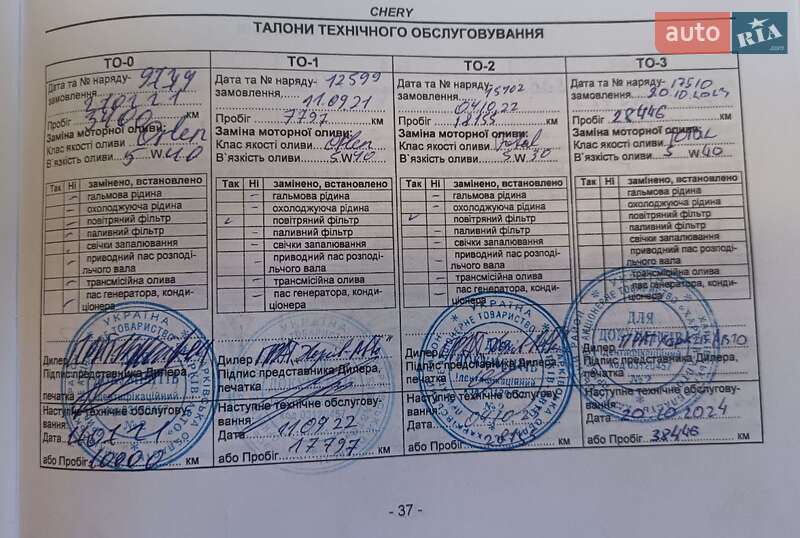 CHERY
auto RIA.com
ТАЛОНИ ТЕХНІЧНОГО ОБСЛУГОВУВАННЯ
ТО-0
Дата та № наряду-
замовлення
Пробіг 3400 км
Заміна моторної оливи:
Клас якості оливи
В`язкість оливи 5 W 40
Так Ні замінено, встановлено
гальмова рідина
охолоджуюча рідина
повітряний фільтр
паливний фільтр
свічки запалювання
приводний пас розподі-
льчого вала
трансмісійна олива
пас генератора, конди-
ціонера
Дилер
Підпис представника Дилера,
печатка
Наступне технічне обслугову-
вання
Дата
або Пробіг 10000 км
ТО-1
Дата та № наряду- 12599
замовлення 11.09.21
Пробіг 7797 км
Заміна моторної оливи:
Клас якості оливи
В`язкість оливи 5 W 40
Так Ні замінено, встановлено
гальмова рідина
охолоджуюча рідина
повітряний фільтр
паливний фільтр
свічки запалювання
приводний пас розподі-
льчого вала
трансмісійна олива
пас генератора, конди-
ціонера
Дилер
Підпис представника Дилера,
печатка
Наступне технічне обслугову-
вання
Дата 11.09.22
або Пробіг 17797 км
ТО-2
Дата та № наряду-
замовлення 04.10.22
Пробіг км
Заміна моторної оливи:
Клас якості оливи Total
В`язкість оливи 5 W 30
Так Ні замінено, встановлено
гальмова рідина
охолоджуюча рідина
повітряний фільтр
паливний фільтр
свічки запалювання
приводний пас розподі-
льчого вала
трансмісійна олива
пас генератора, конди-
ціонера
Дилер
Підпис представника Дилера,
печатка
Наступне технічне обслугову-
вання
Дата
або Пробіг км
ТО-3
Дата та № наряду- 17510
замовлення 20.10.2023
Пробіг 28446 км
Заміна моторної оливи:
Клас якості оливи TOTAL
В`язкість оливи 5 W 40
Так Ні замінено, встановлено
гальмова рідина
охолоджуюча рідина
повітряний фільтр
паливний фільтр
свічки запалювання
приводний пас розподі-
льчого вала
трансмісійна олива
пас генератора, конди-
ціонера
Дилер
Підпис представника Дилера,
печатка
Наступне технічне обслугову-
вання
Дата 20.10.2024
або Пробіг 38446 км
- 37 -